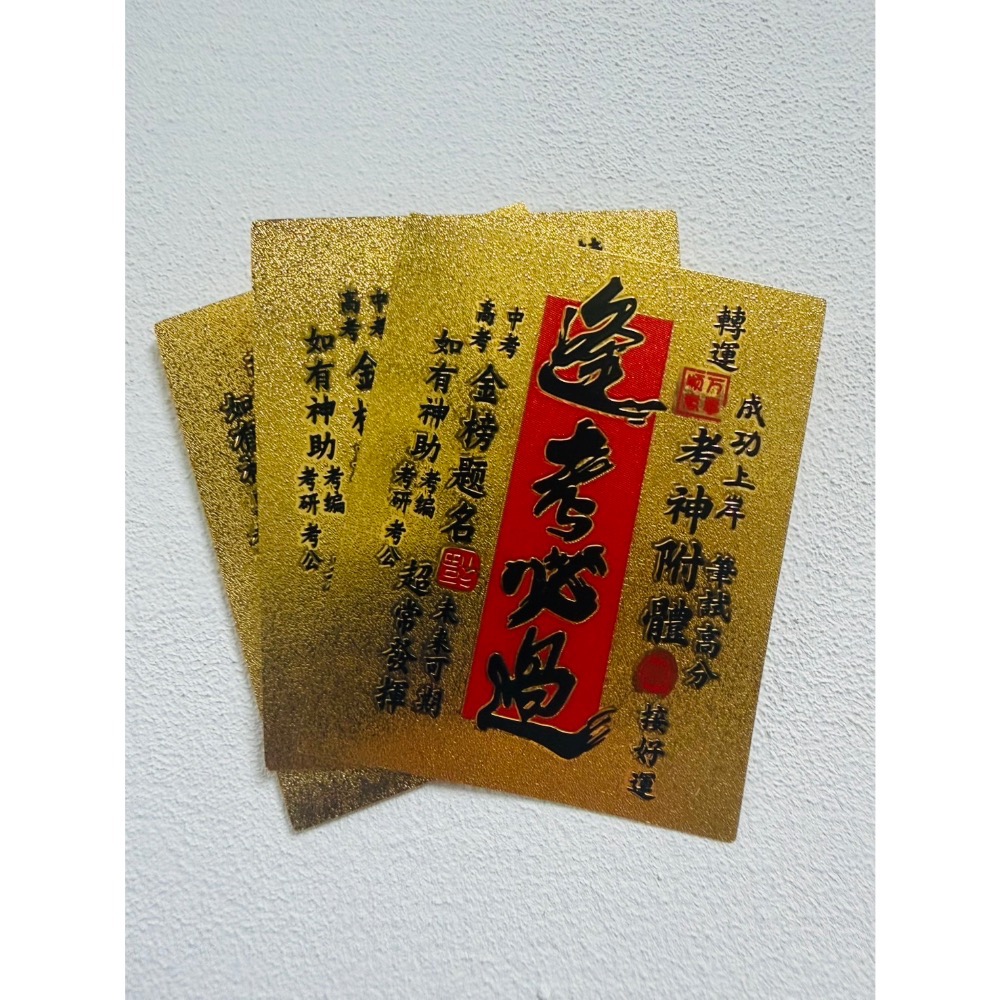 轉運
成功上岸
万事
順意
考神附體
筆試高分
接好運
逢考必過
中考
高考
金榜题名
未来可期
如有神助
考编
考研
考公
超常發揮
中考
高考
金榜
如有神助
考编
考研
考公
如有